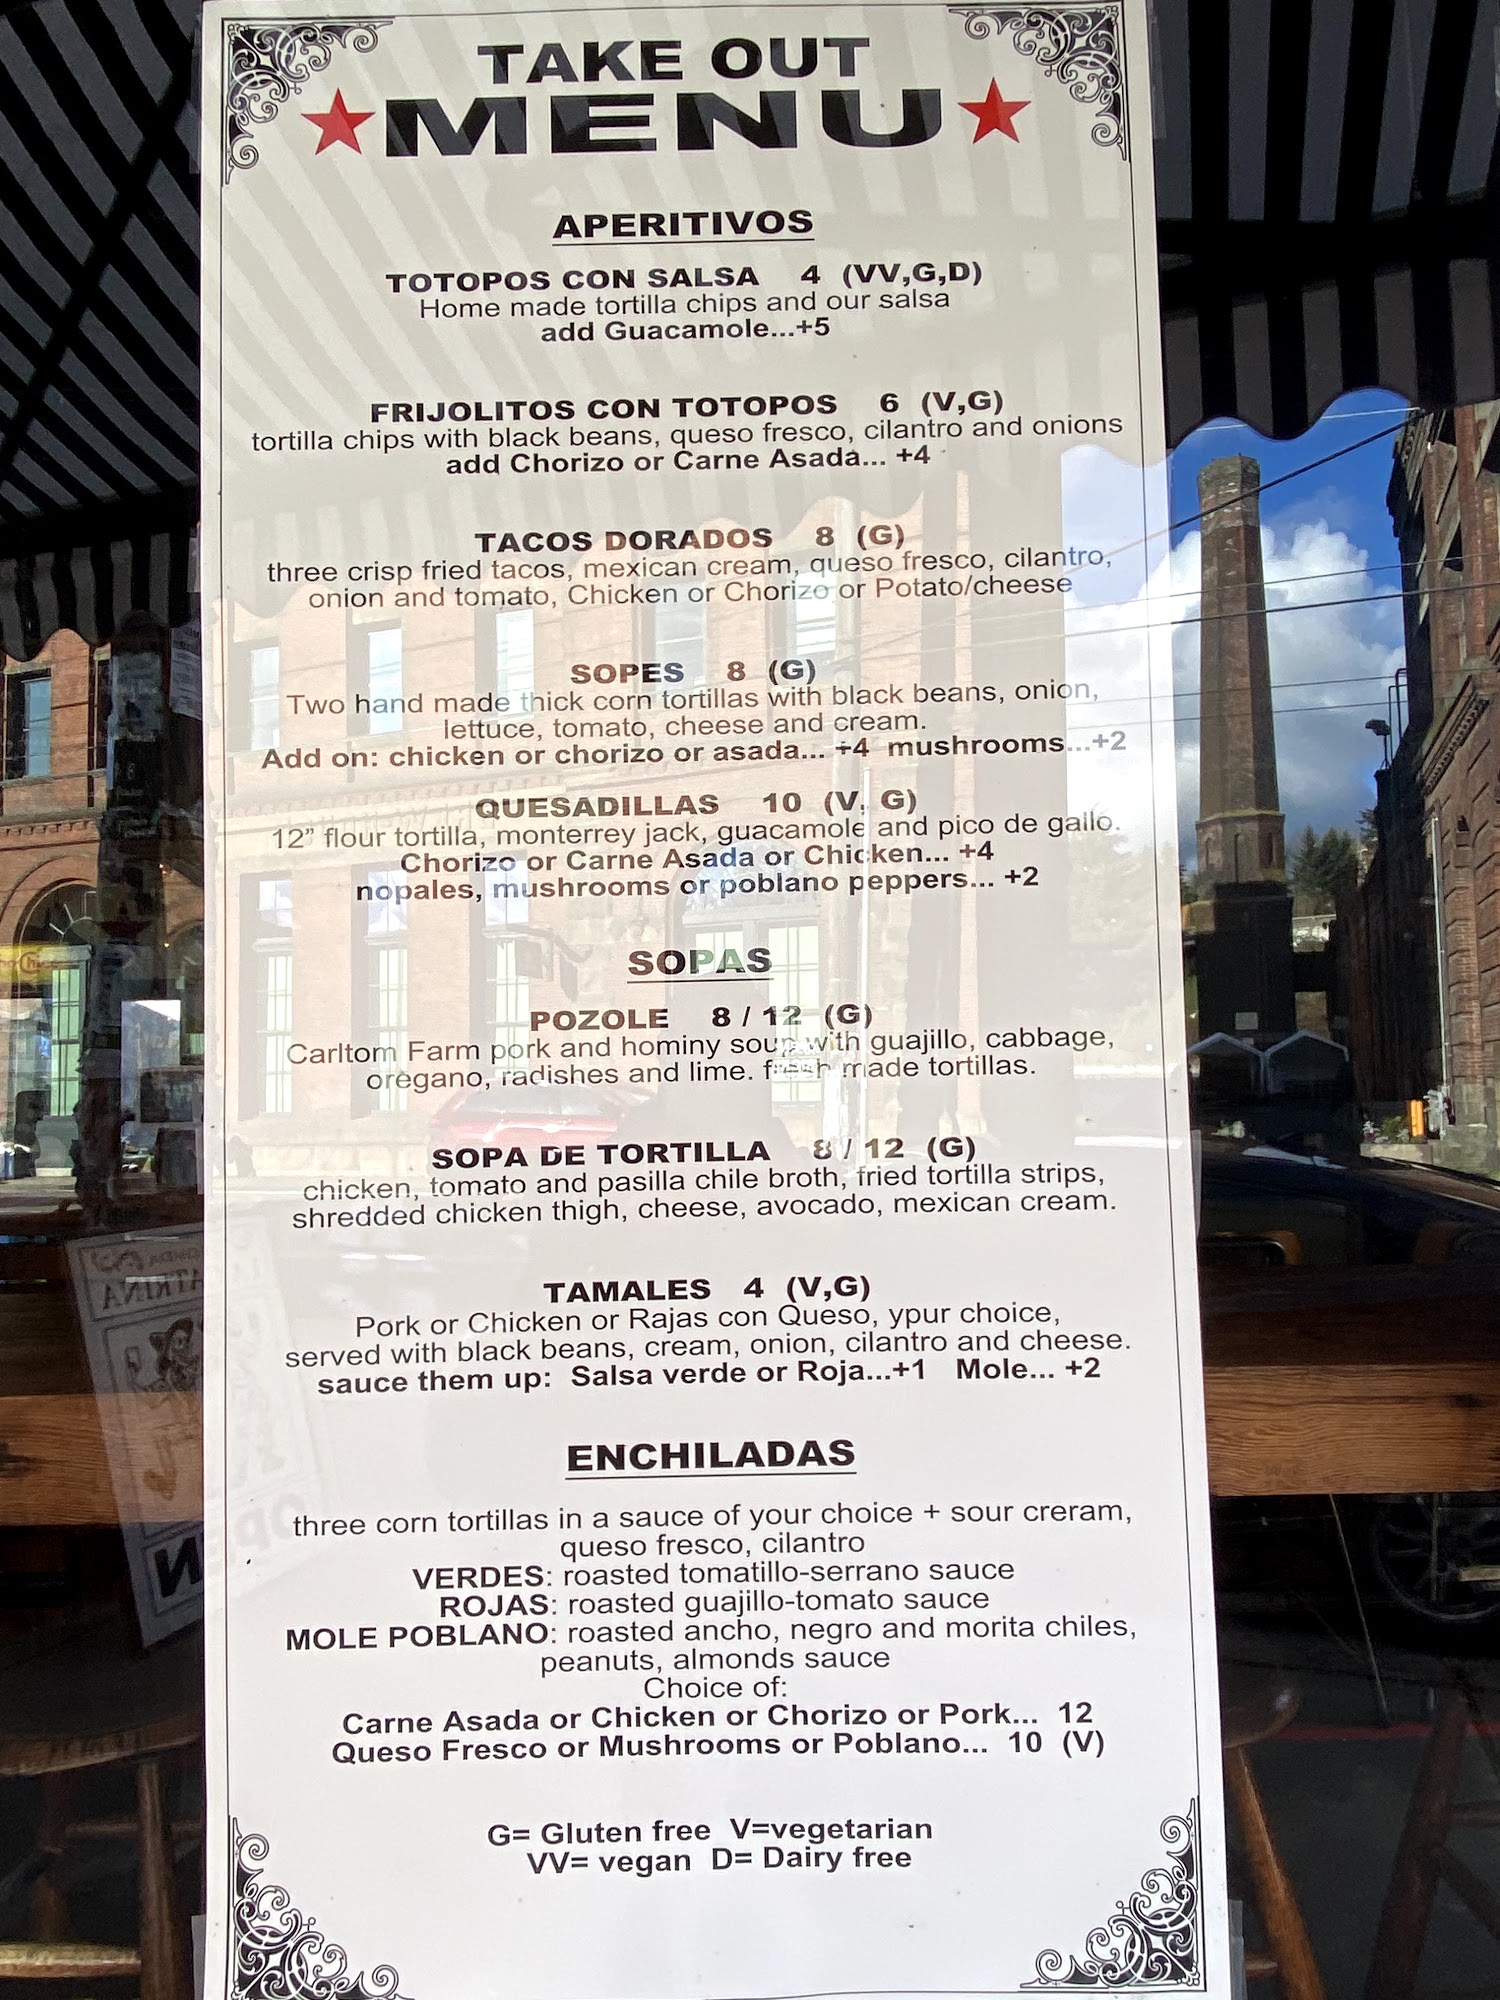 TAKE OUT
MENU
APERITIVOS
TOTOPOS CON SALSA 4 (VV,G,D)
Home made tortilla chips and our salsa
add Guacamole...+5
FRIJOLITOS CON TOTOPOS 6 (V,G)
tortilla chips with black beans, queso fresco, cilantro and onions
add Chorizo or Carne Asada... +4
TACOS DORADOS 8 (G)
three crisp fried tacos, mexican cream, queso fresco, cilantro,
onion and tomato, Chicken or Chorizo or Potato/cheese
SOPES 8 (G)
Two hand made thick corn tortillas with black beans, onion,
lettuce, tomato, cheese and cream.
Add on: chicken or chorizo or asada... +4 mushrooms...+2
QUESADILLAS 10 (V, G)
12” flour tortilla, monterrey jack, guacamole and pico de gallo.
Chorizo or Carne Asada or Chicken... +4
nopales, mushrooms or poblano peppers... +2
SOPAS
POZOLE 8 / 12 (G)
Carltom Farm pork and hominy soup with guajillo, cabbage,
oregano, radishes and lime. fresh made tortillas.
SOPA DE TORTILLA 8 / 12 (G)
chicken, tomato and pasilla chile broth, fried tortilla strips,
shredded chicken thigh, cheese, avocado, mexican cream.
TAMALES 4 (V,G)
Pork or Chicken or Rajas con Queso, ypur choice,
served with black beans, cream, onion, cilantro and cheese.
sauce them up: Salsa verde or Roja...+1 Mole... +2
ENCHILADAS
three corn tortillas in a sauce of your choice + sour creram,
queso fresco, cilantro
VERDES: roasted tomatillo-serrano sauce
ROJAS: roasted guajillo-tomato sauce
MOLE POBLANO: roasted ancho, negro and morita chiles,
peanuts, almonds sauce
Choice of:
Carne Asada or Chicken or Chorizo or Pork... 12
Queso Fresco or Mushrooms or Poblano... 10 (V)
G= Gluten free V=vegetarian
VV= vegan D= Dairy free